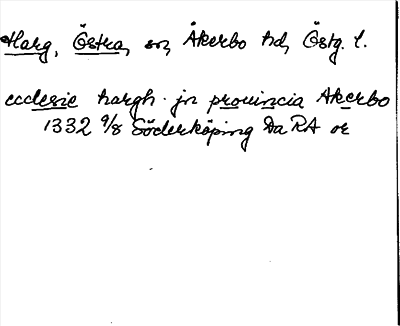 Harg, Östra, sn, Åkerbo hd, Östg. l.
ecclesie hargh jn prouincia Akerbo
1332 9/8 Söderköping Da RA or